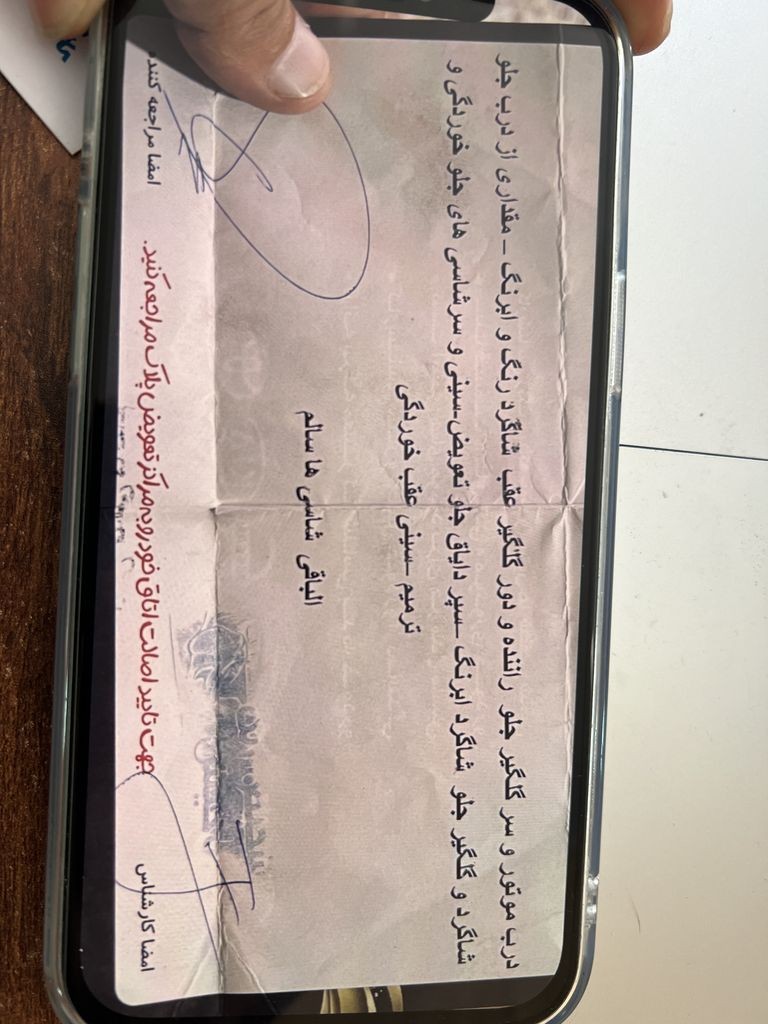 درب موتور و سر گلگیر جلو راننده و دور گلگیر عقب شاگرد رنگ و ابرنگ - مقداری از درب جلو
شاگرد و گلگیر جلو شاگرد ابرنگ -سپر دایاق جلو تعویض-سینی و سرشاسی های جلو خوردگی و
ترمیم -سینی عقب خوردگی
الباقی شاسی ها سالم
امضا کارشناس
جهت تایید اصالت اتاق خودرو به مراکز تعویض پلاک مراجعه کنید.
امضا مراجعه کننده